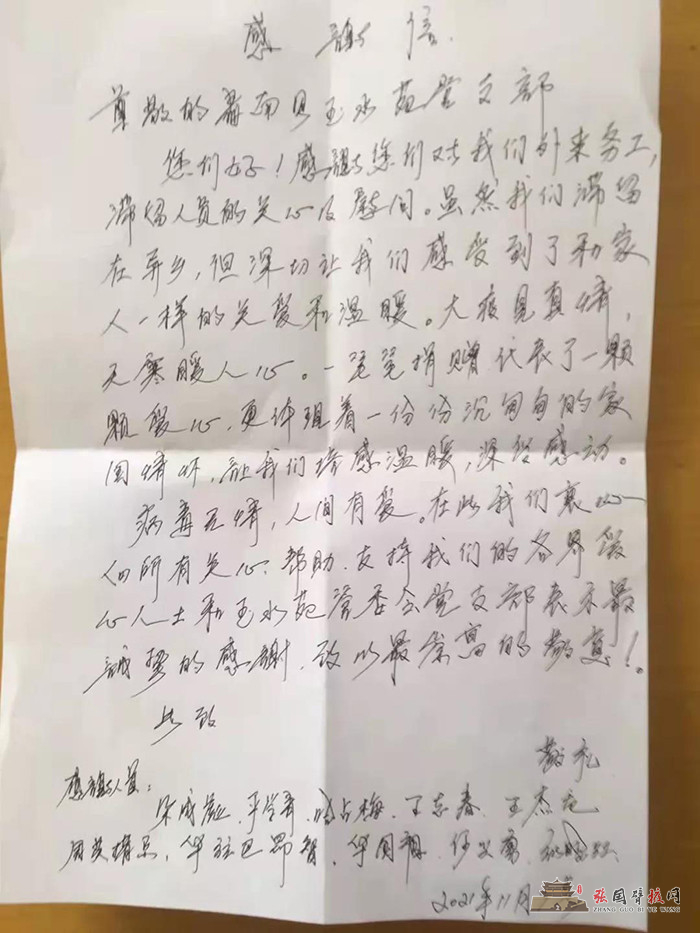 感谢信
尊敬的霍西贝玉水苑党支部
您们好！感谢您们对我们外来务工,
滞留人员的关心及慰问。虽然我们滞留
在异乡,但深切让我们感受到了和家
人一样的关爱和温暖。大疫见真情,
天寒暖人心。一笔笔捐赠代表了一颗
颗爱心,更体现着一份份沉甸甸的家
国情怀,让我们倍感温暖,深受感动。
病毒无情,人间有爱。在此我们衷心
向所有关心、帮助、支持我们的各界爱
心人士和玉水苑管委会党支部表示最
诚挚的感谢,致以最崇高的敬意！
此致
敬礼
感谢人员:
王志春、王杰
2021年11月
张国臂掖网
ZHANG GUO BI YE WANG